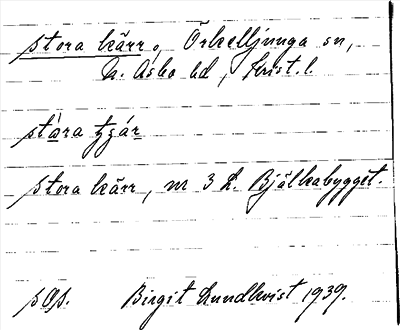 stora kärr, Örkelljunga sn,
N. Åsbo hd, Krist. l.
stòra tʒár
stora kärr, n 3 L. Bjälkabygget.
Birgit Lundkvist 1939.